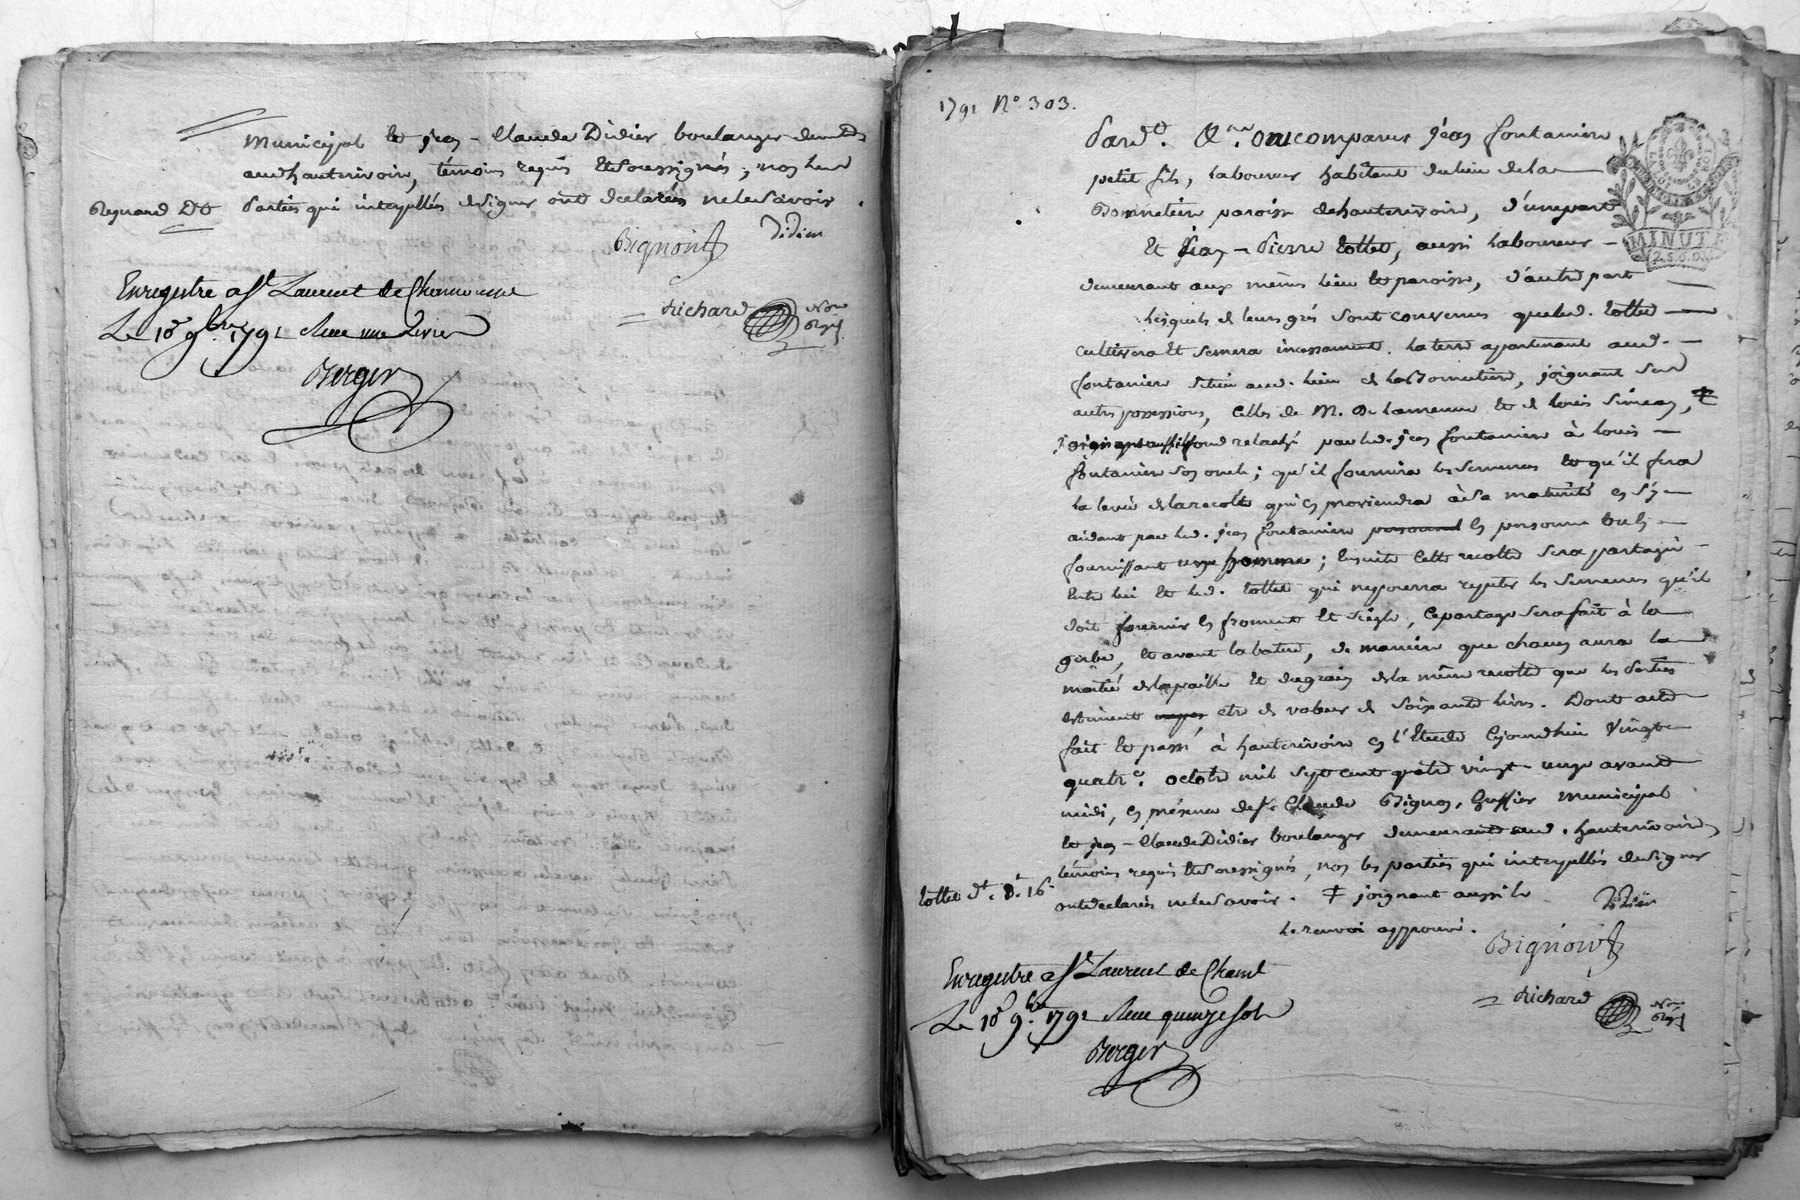 municipal et jean-Claude Didier boulanger demt
aud hauterivoir, témoins requis et soussignés; non les
parties qui interpellés designer ont déclarés nelesavoir.
Regnand Dt
Didier
Bignoin
Richard Nore
Royl
Enregistré a St Laurent de Chamousset
Le 10 9bre 1791 Reçu une Livre
Berger
1791 No 303.
MINUTE
2.S.6.D.
Pard.t. &.re ont comparus jean fontanier
petit fils, laboureur habitant dulieu de la
Bonnetiere paroisse dehauterivoir, d'unepart
Et jean-Pierre Collet, aussi laboureur
demeurant aux mêmes lieu et paroisse, d'autre part
lesquels de leurs grés sont convenus queled. Collet
cultivera et semera incessament la terre appartenant aud.
fontanier située aud. lieu de la Bonnetiere, joignant ses
autres possessions, celles de M. De et de louis Simean, ‡
fond relaché par led. jean fontanier à louis
fontanier son oncle; qu'il fournira les semences et qu'il fera
la levée delarecolte qui en proviendra à sa maturité en s'y
aidant par led. jean fontanier personnel en personne ou en
fournissant un homme; ensuite cette recolte sera partagée
entre lui et led. Collet qui nepourra repeter les semences qu'il
doit fournir en froment et seigle, lepartage serafait à la
gerbe, et avant la batue, de maniere que chacun aura la
moitié delapaille et dugrain dela même recolte que les Parties
estiment etre de valeur de soixante livres. Dont acte
fait et passé à hauterivoir en l'Etude cejourdhui vingt
quatre. octobre mil sept cent quatre vingt-onze avant
midi, en présence de sr Claude Bignon, Greffier municipal
et jean-Claude Didier boulanger demeurant aud. hauterivoir,
témoins requis et soussignés, non les parties qui interpellés designer
ontdeclarés nelesavoir. ‡ joignant aussi le
le renvoi approuvé.
Collet dt. 16s
Didier
Bignoin
Richard Nore
Royl
Enregistré a St Laurent de Chamt
Le 10 9bre 1791 Reçu quinze sols
Berger